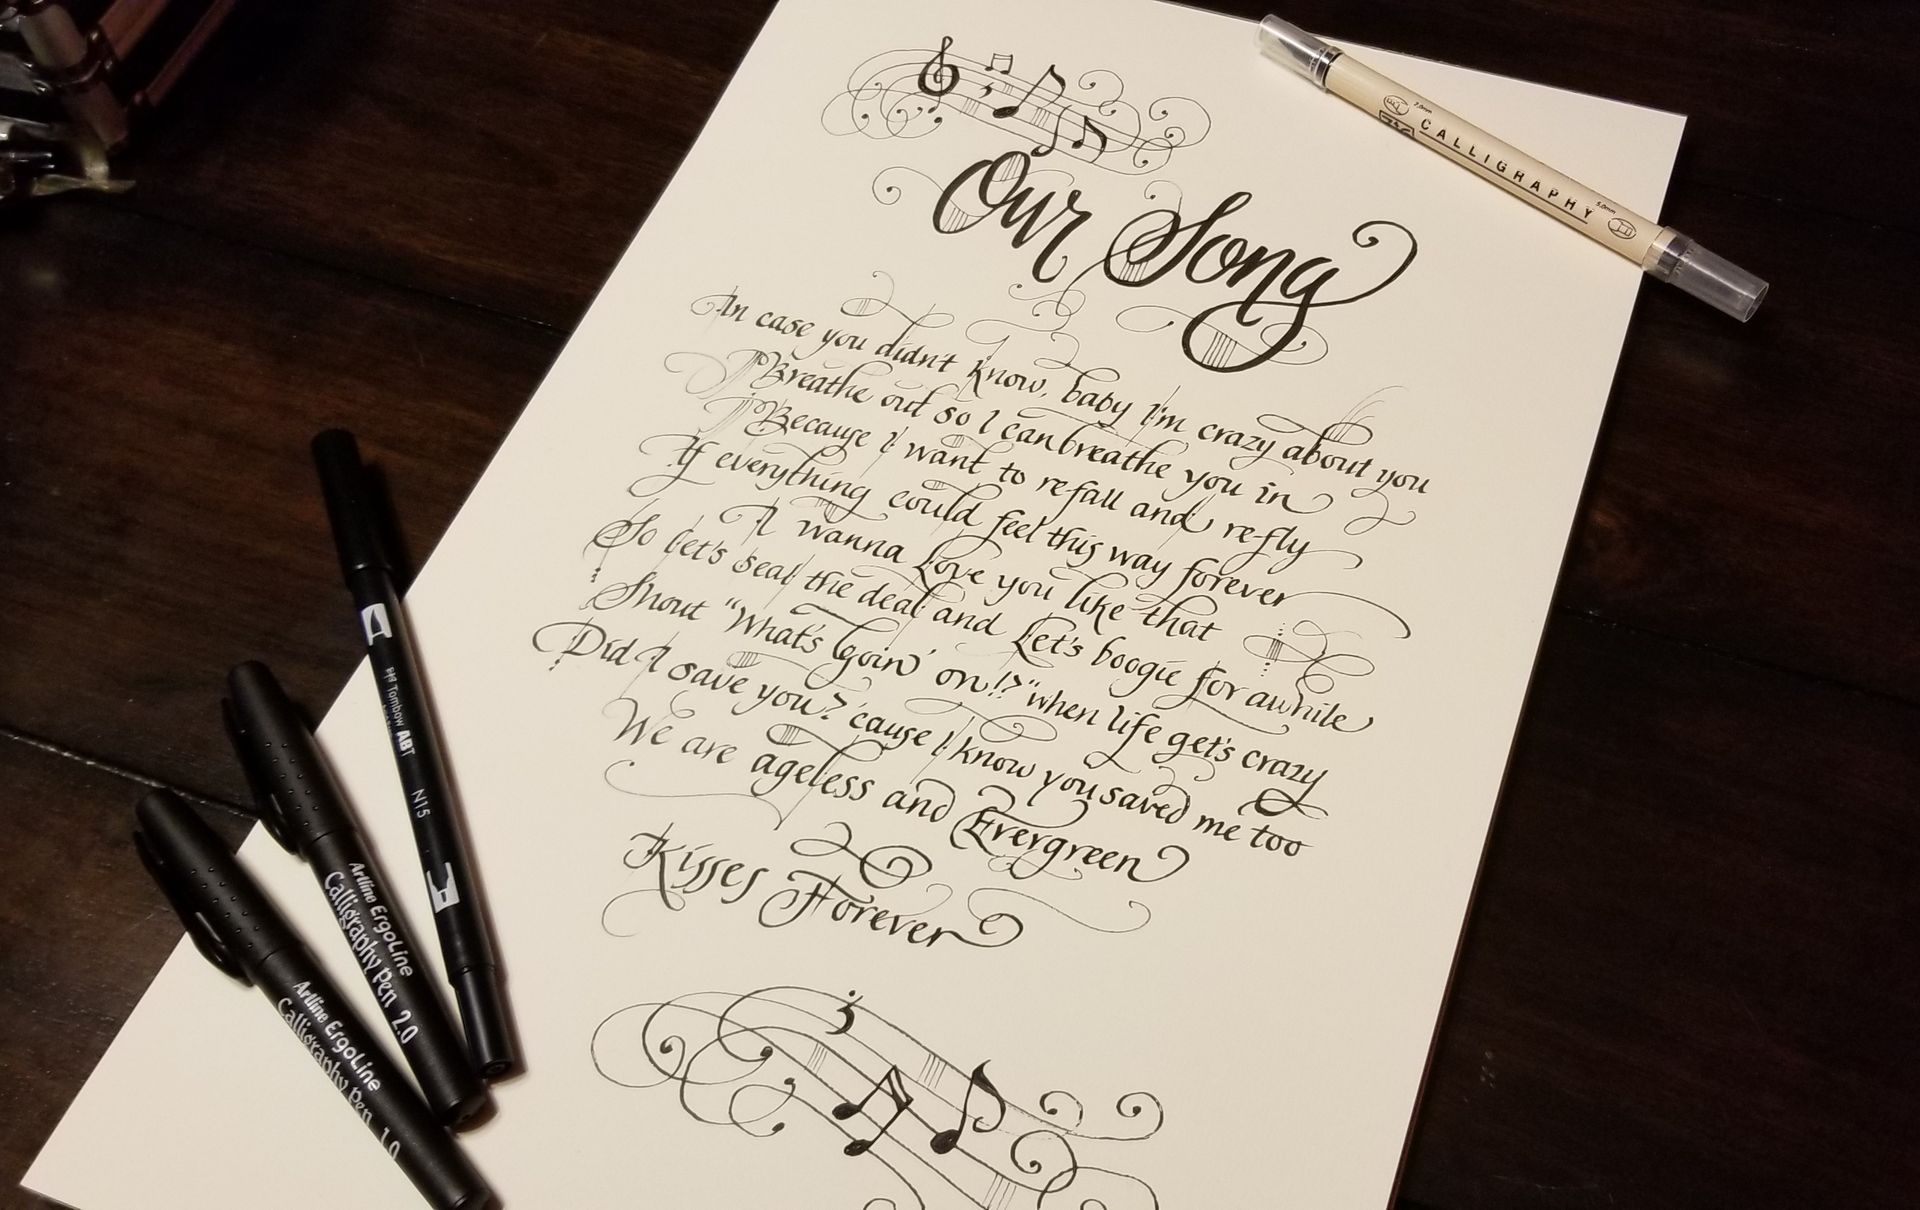 Our Song
In case you didn't know, baby I'm crazy about you
Breathe out so I can breathe you in
Because I want to refall and re-fly
If everything could feel this way forever
I wanna Love you like that
So let's seal the deal and Let's boogie for awhile
Shout "What's Goin' on!?" when life get's crazy
Did I save you? 'cause I know you saved me too
We are ageless and Evergreen
Kisses Forever
CALLIGRAPHY
2.0mm
5.0mm
Tombow ABT
N15
Artline ErgoLine
Calligraphy Pen 2.0
Artline ErgoLine
Calligraphy Pen 1.0